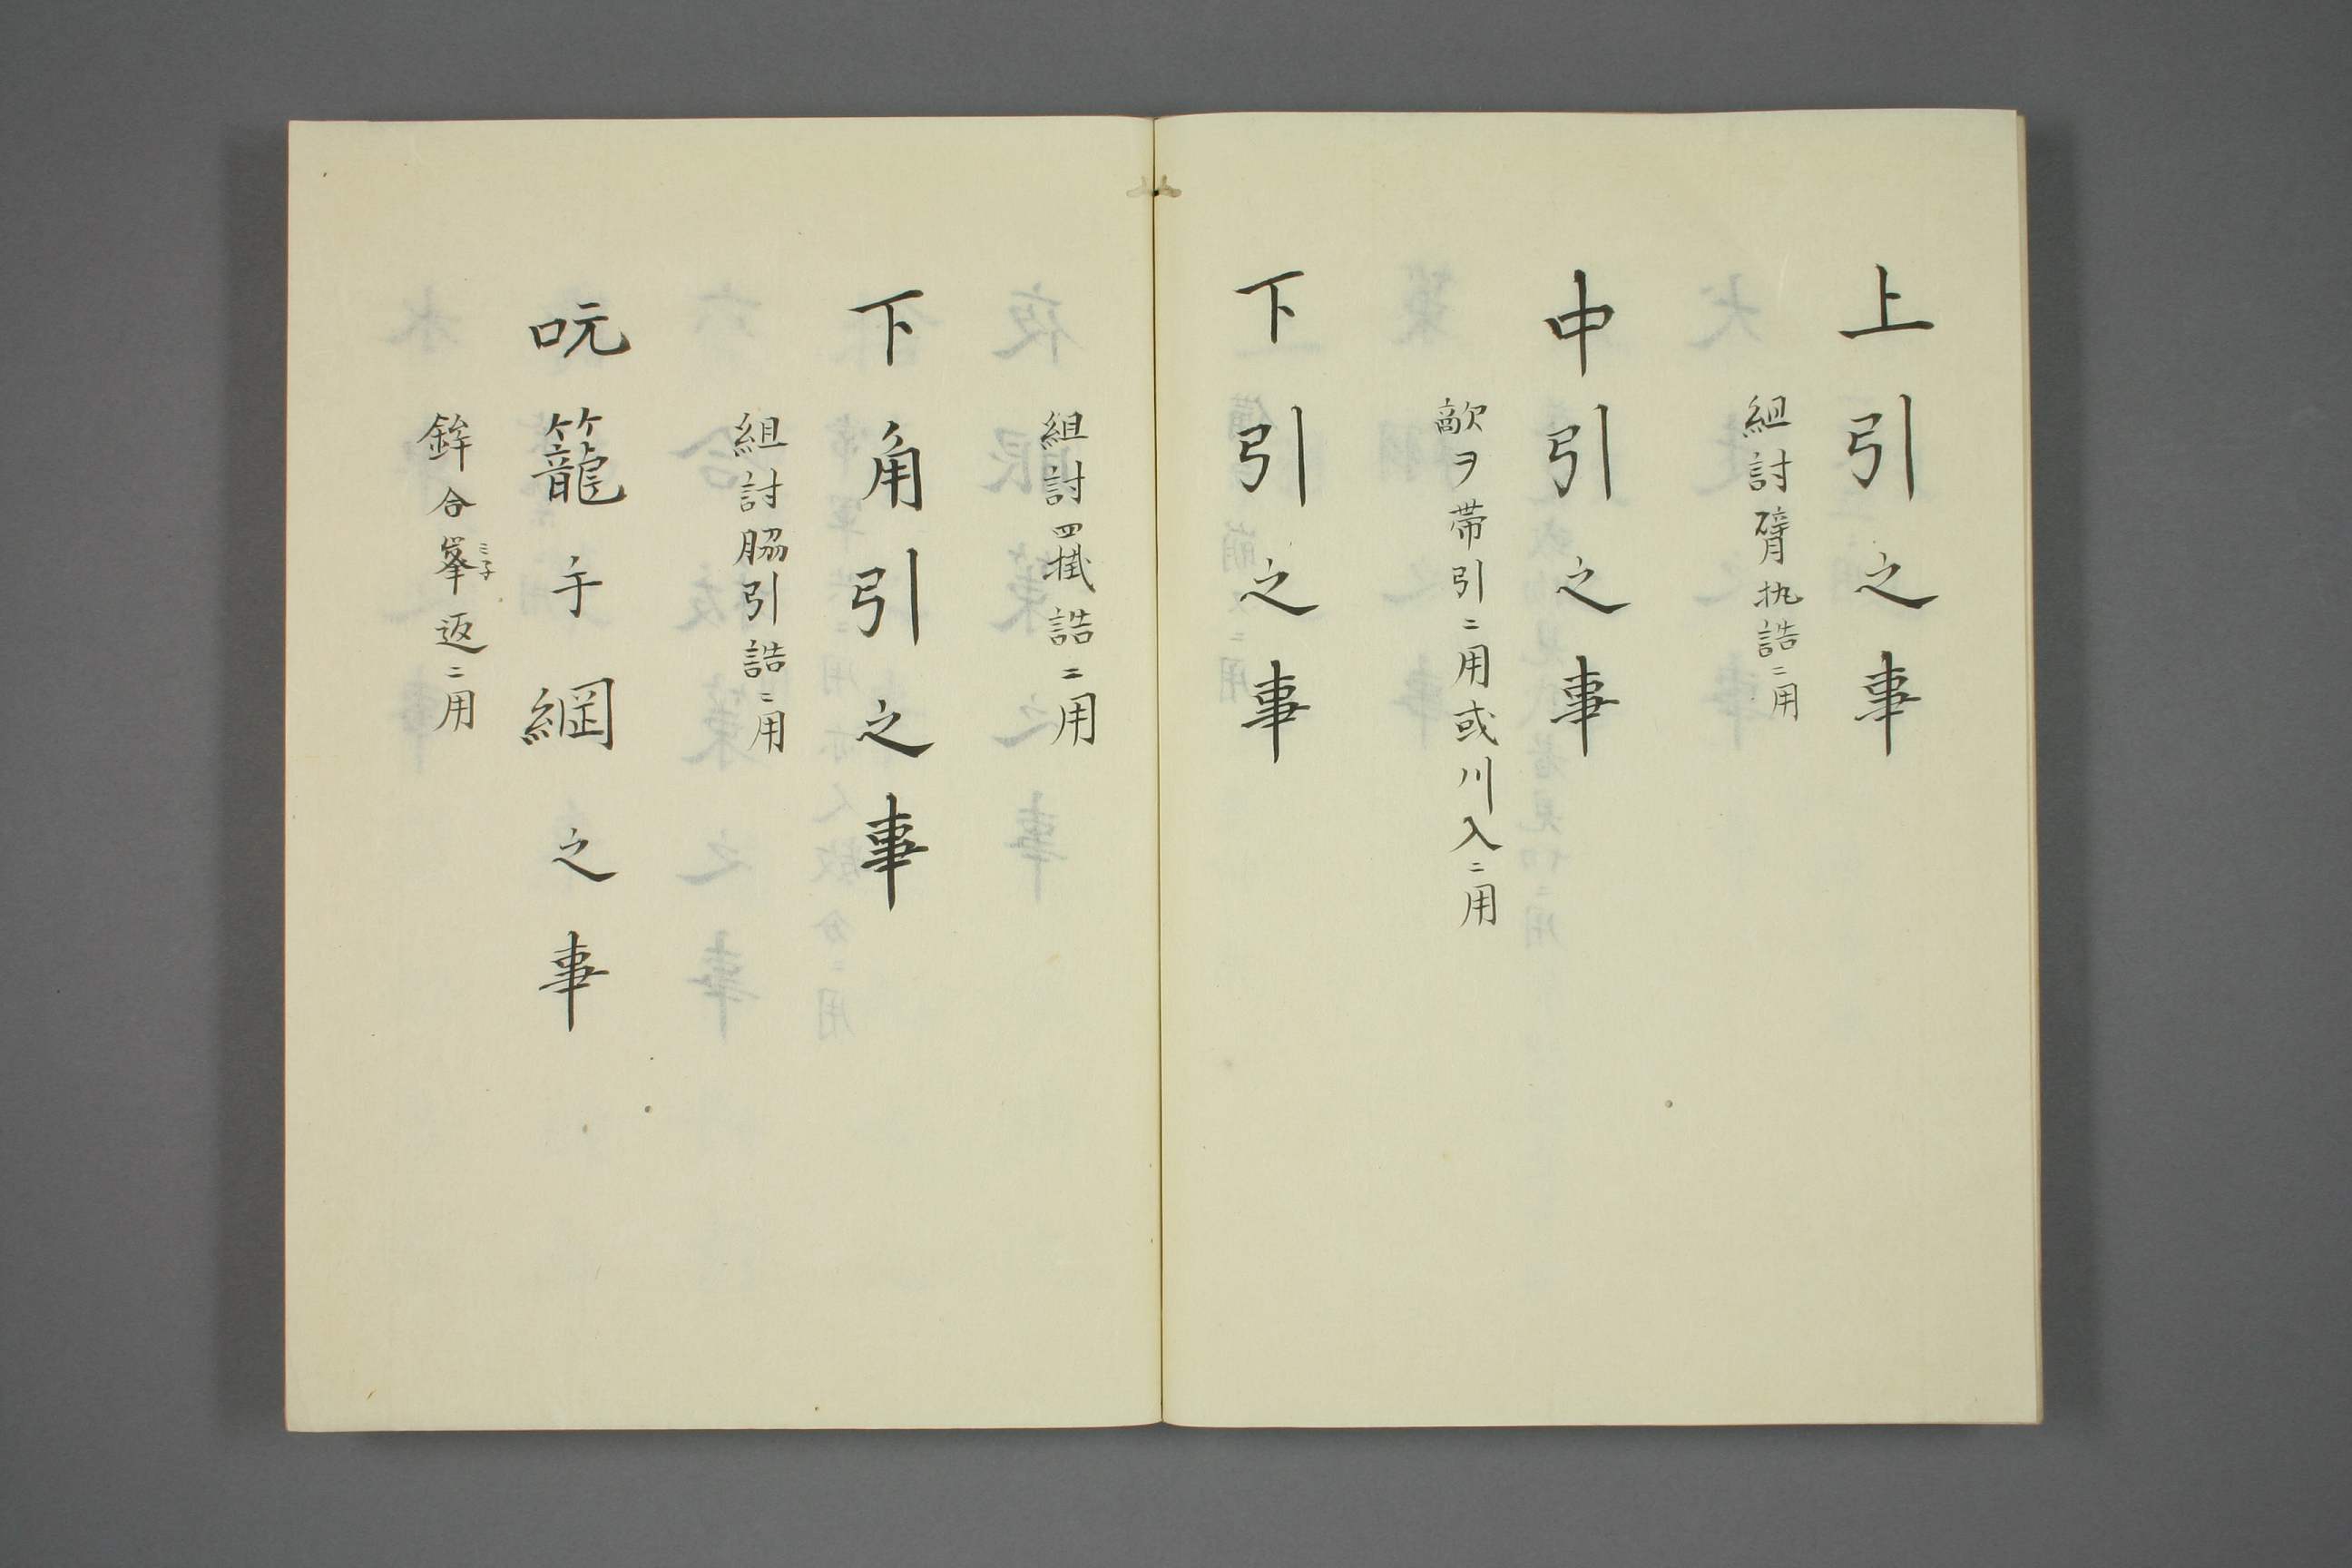 上引之事
組討臂执誥ニ用
中引之事
敵ヲ帯引ニ用或川入ニ用
下引之事
組討四掛誥ニ用
下角引之事
組討脇引誥ニ用
呪籠手綱之事
鉾合峯返ニ用
ミ子